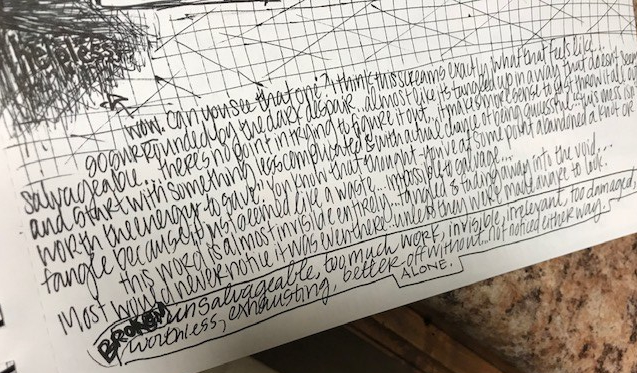 helpless
wow. can you see that one? I think this screams exactly what that feels like...
goo... surrounded by the dark despair. almost like its tangled up in a way that doesn't seem
salvageable... there's no point in trying to figure it out... it makes more sense to just throw it all out
and start with something less complicated & with actual chance of being questful. like this one is isn't
worth the energy to save. You know that thought- you've at some point abandoned a knot or
tangle because it was deemed like a waste... impossible to salvage...
this word is almost invisible entirely... tangled & fading away into the void.
Most would never notice it was even there... unless they were made aware to look.
BROKEN unsalvageable, too much work, invisible, irrelevant, too damaged,
worthless, exhausting, better off without... not noticed either way.
ALONE.